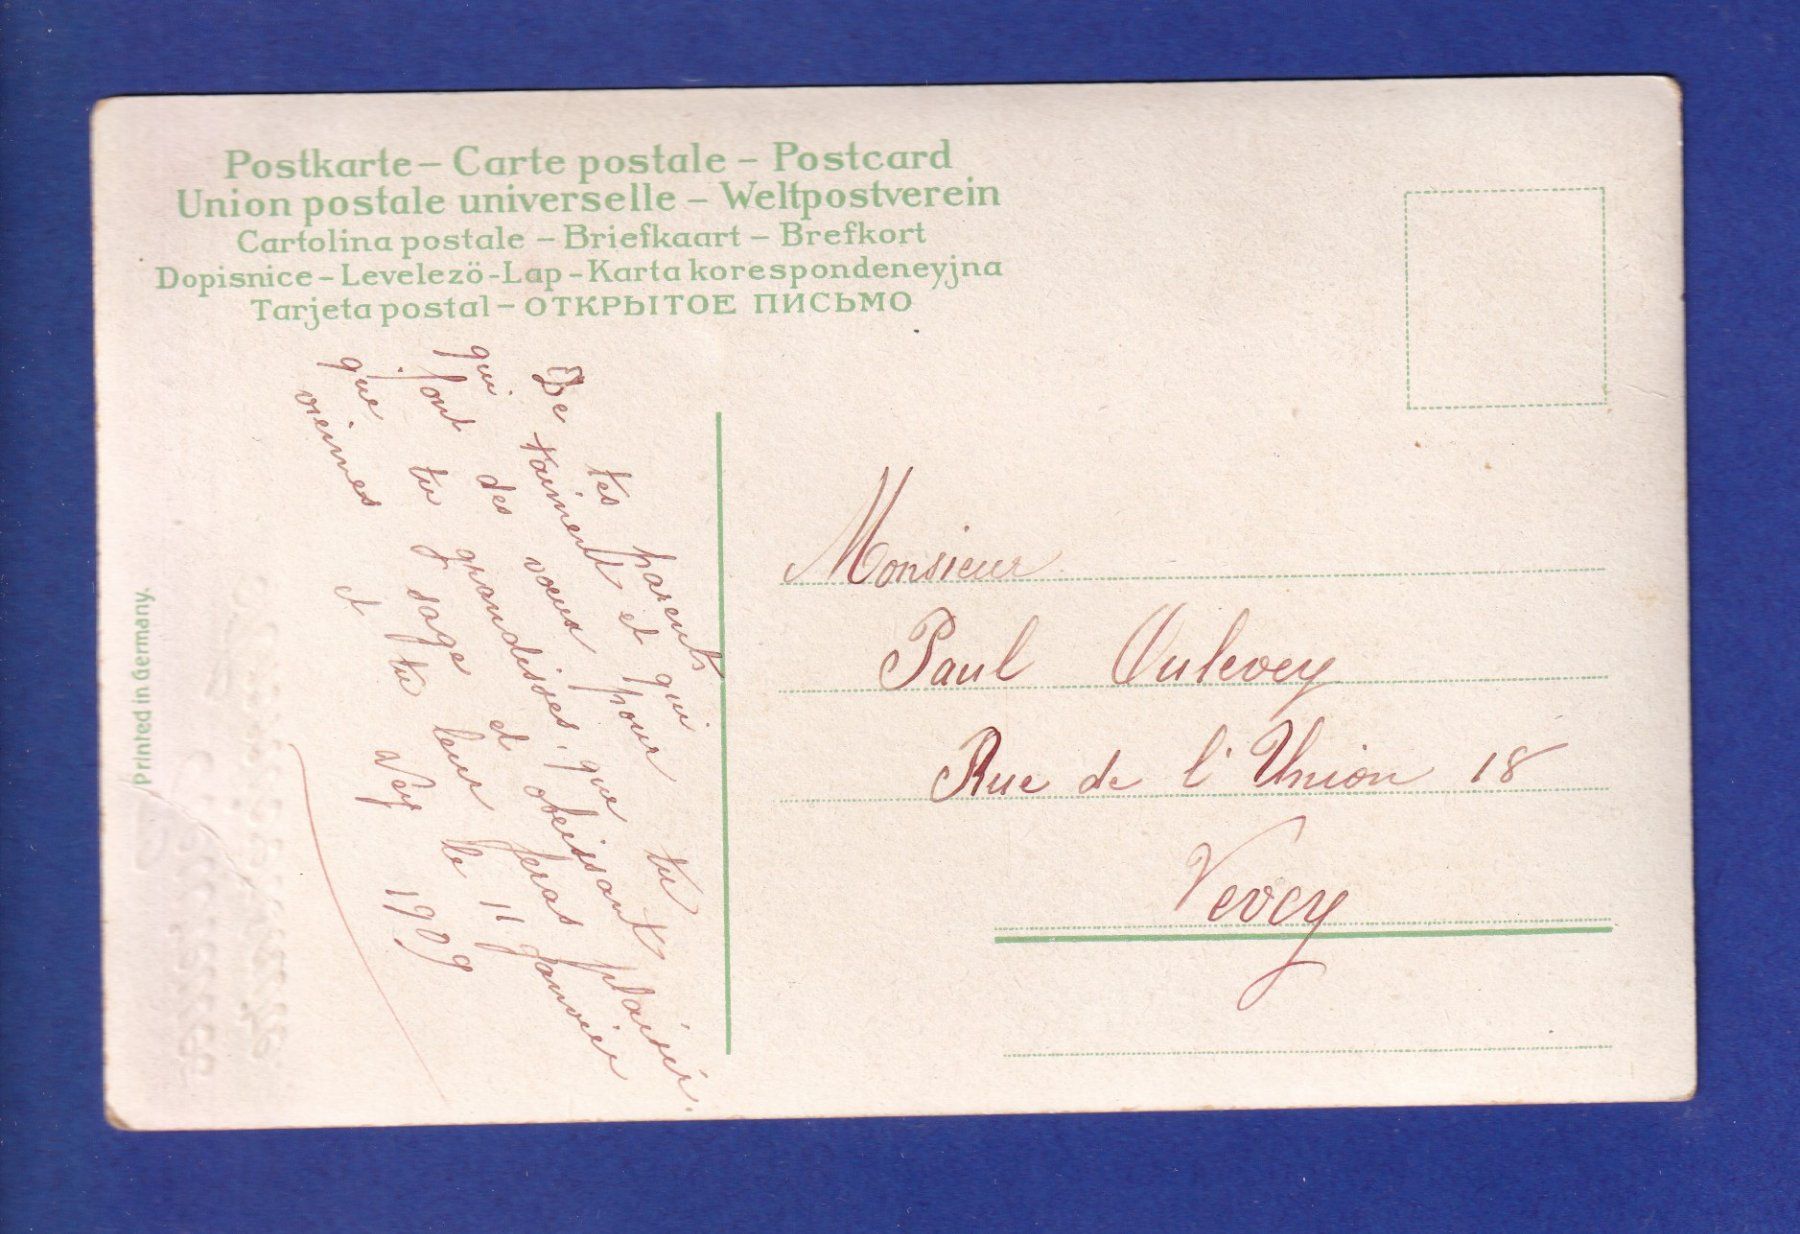 Postkarte – Carte postale – Postcard
Union postale universelle – Weltpostverein
Cartolina postale – Briefkaart – Brefkort
Dopisnice – Levelező-Lap – Karta korespondeneyjna
Tarjeta postal – ОТКРЫТОЕ ПИСЬМО
De tes parents
qui t'aiment et qui
font des voeux pour
que tu grandisses, que tu
viennes sage et obeissant
et tu leur feras plaisir.
Vey le 11 Janvier
1909
Monsieur
Paul Oulevey
Rue de l'Union 18
Vevey
Printed in Germany.